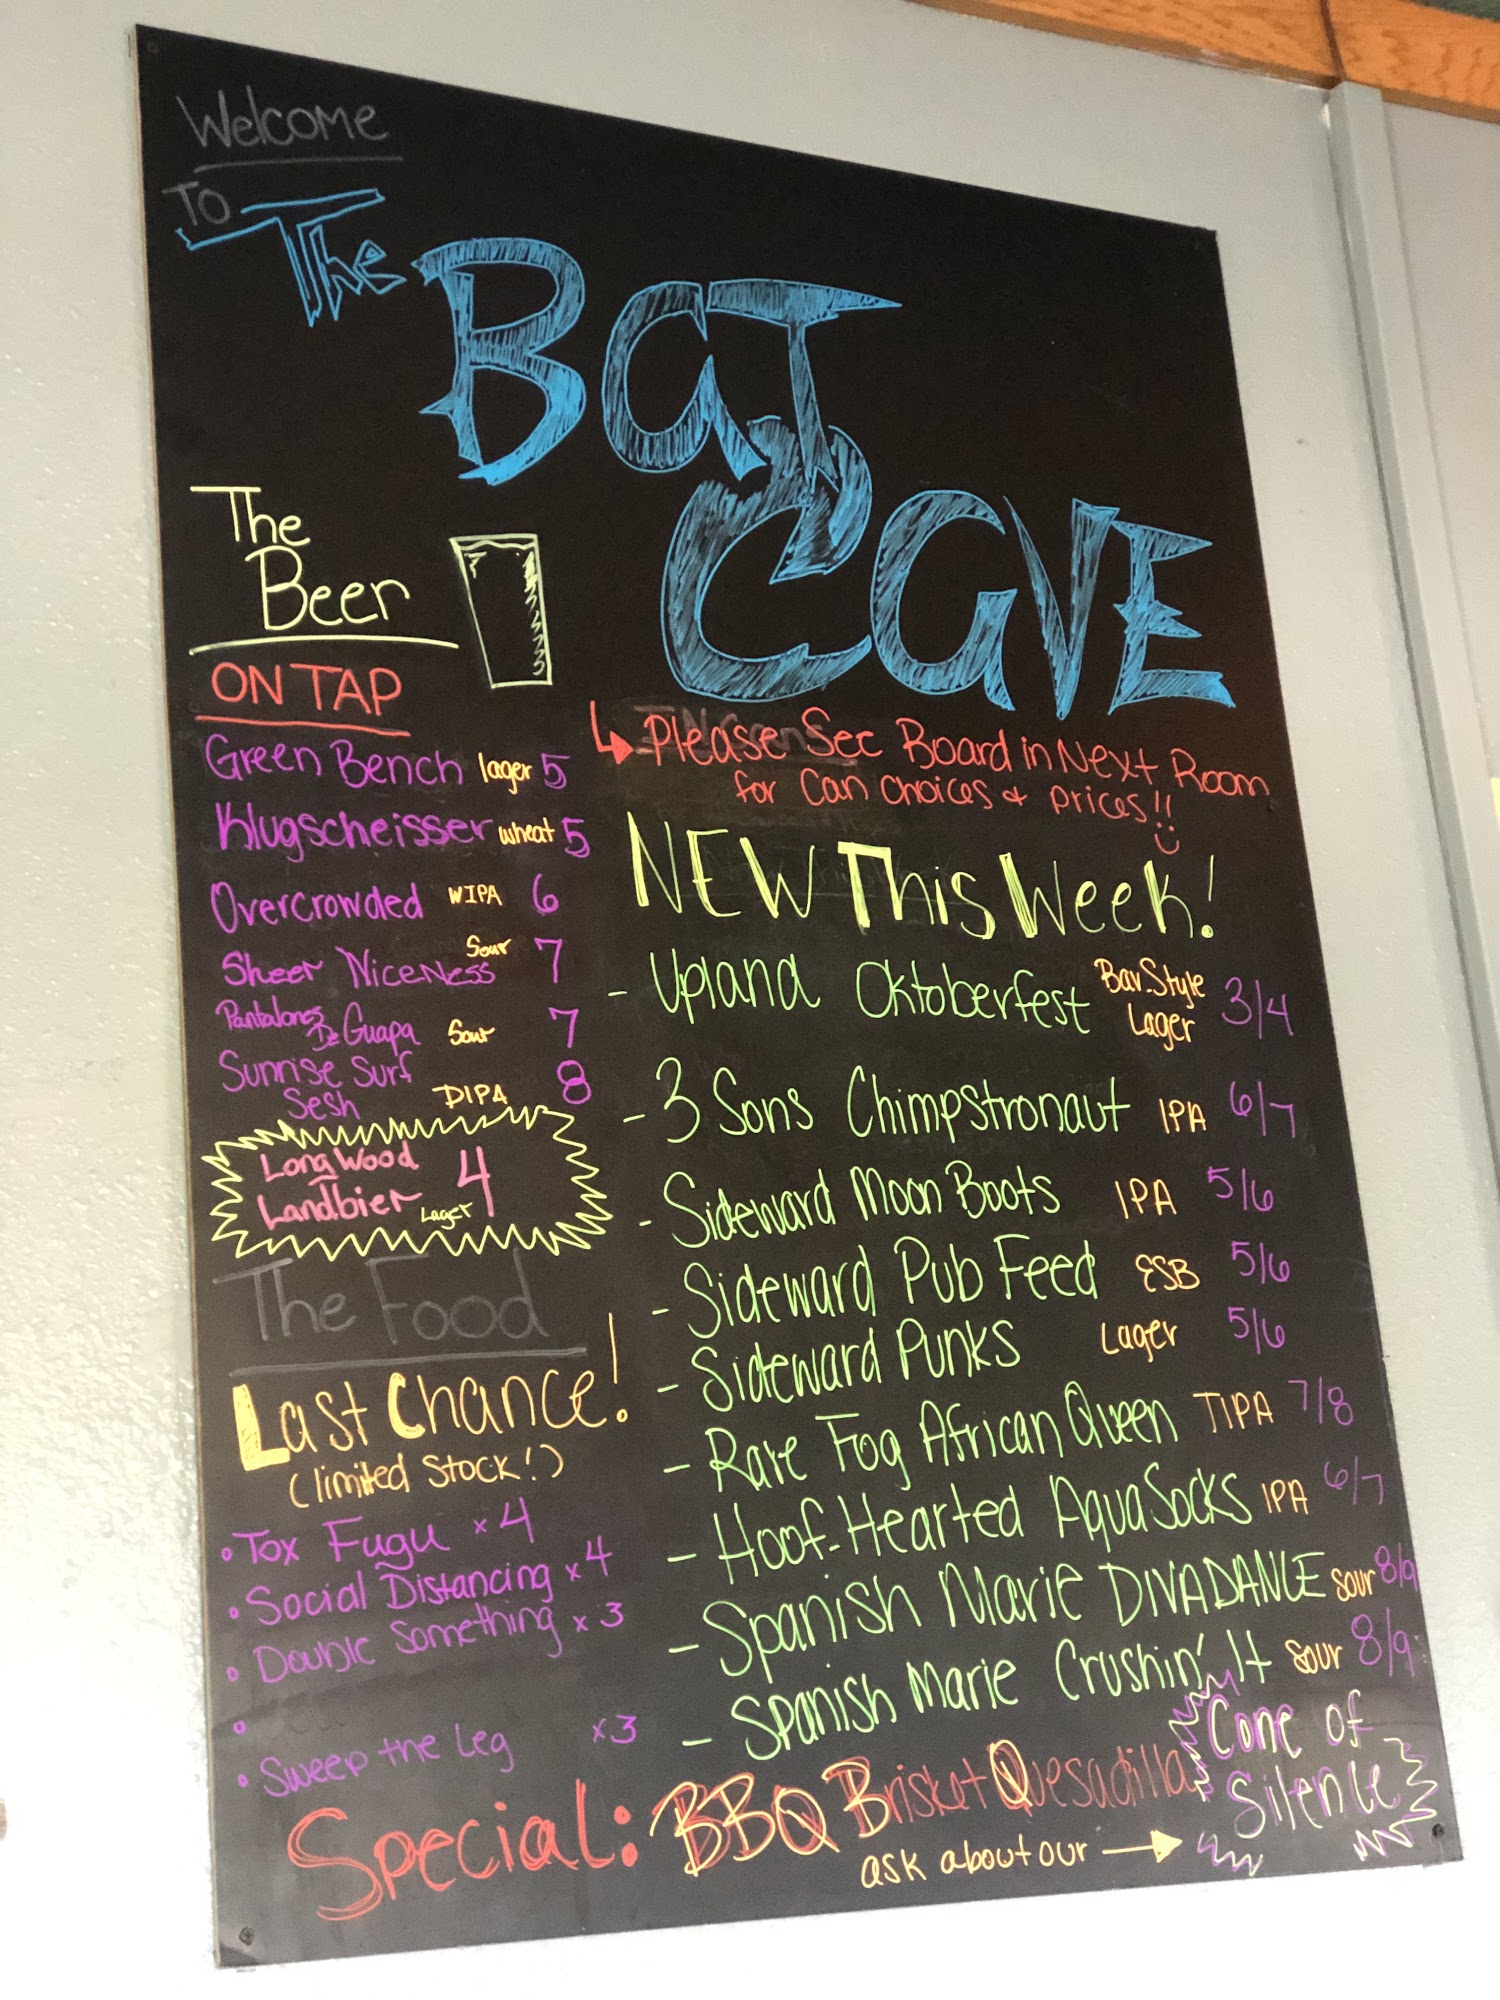 Welcome
To The
Bat
Cave
The
Beer
ON TAP
Green Bench lager 5
Klugscheisser wheat 5
Overcrowded WIPA 6
Sheer Niceness Sour 7
Pantalones
De Guapa Sour 7
Sunrise Surf
Sesh DIPA 8
Long Wood
Landbier Lager 4
The Food
Last Chance!
(limited stock!)
• Tox Fugu x 4
• Social Distancing x 4
• Double Something x 3
•
• Sweep the Leg x 3
Please See Board in Next Room
for Can Choices & prices!!
NEW This Week!
- Upland Oktoberfest Bav-Style
Lager 3/4
- 3 Sons Chimpstronaut IPA 6/7
- Sideward Moon Boots IPA 5/6
- Sideward Pub Feed ESB 5/6
- Sideward Punks Lager 5/6
- Rare Fog African Queen TIPA 7/8
- Hoof-Hearted AquaSocks IPA 6/7
- Spanish Marie DIVADANCE sour 8/9
- Spanish Marie Crushin' It sour 8/9
Special: BBQ Brisket Quesadilla
ask about our
Cone of
Silence